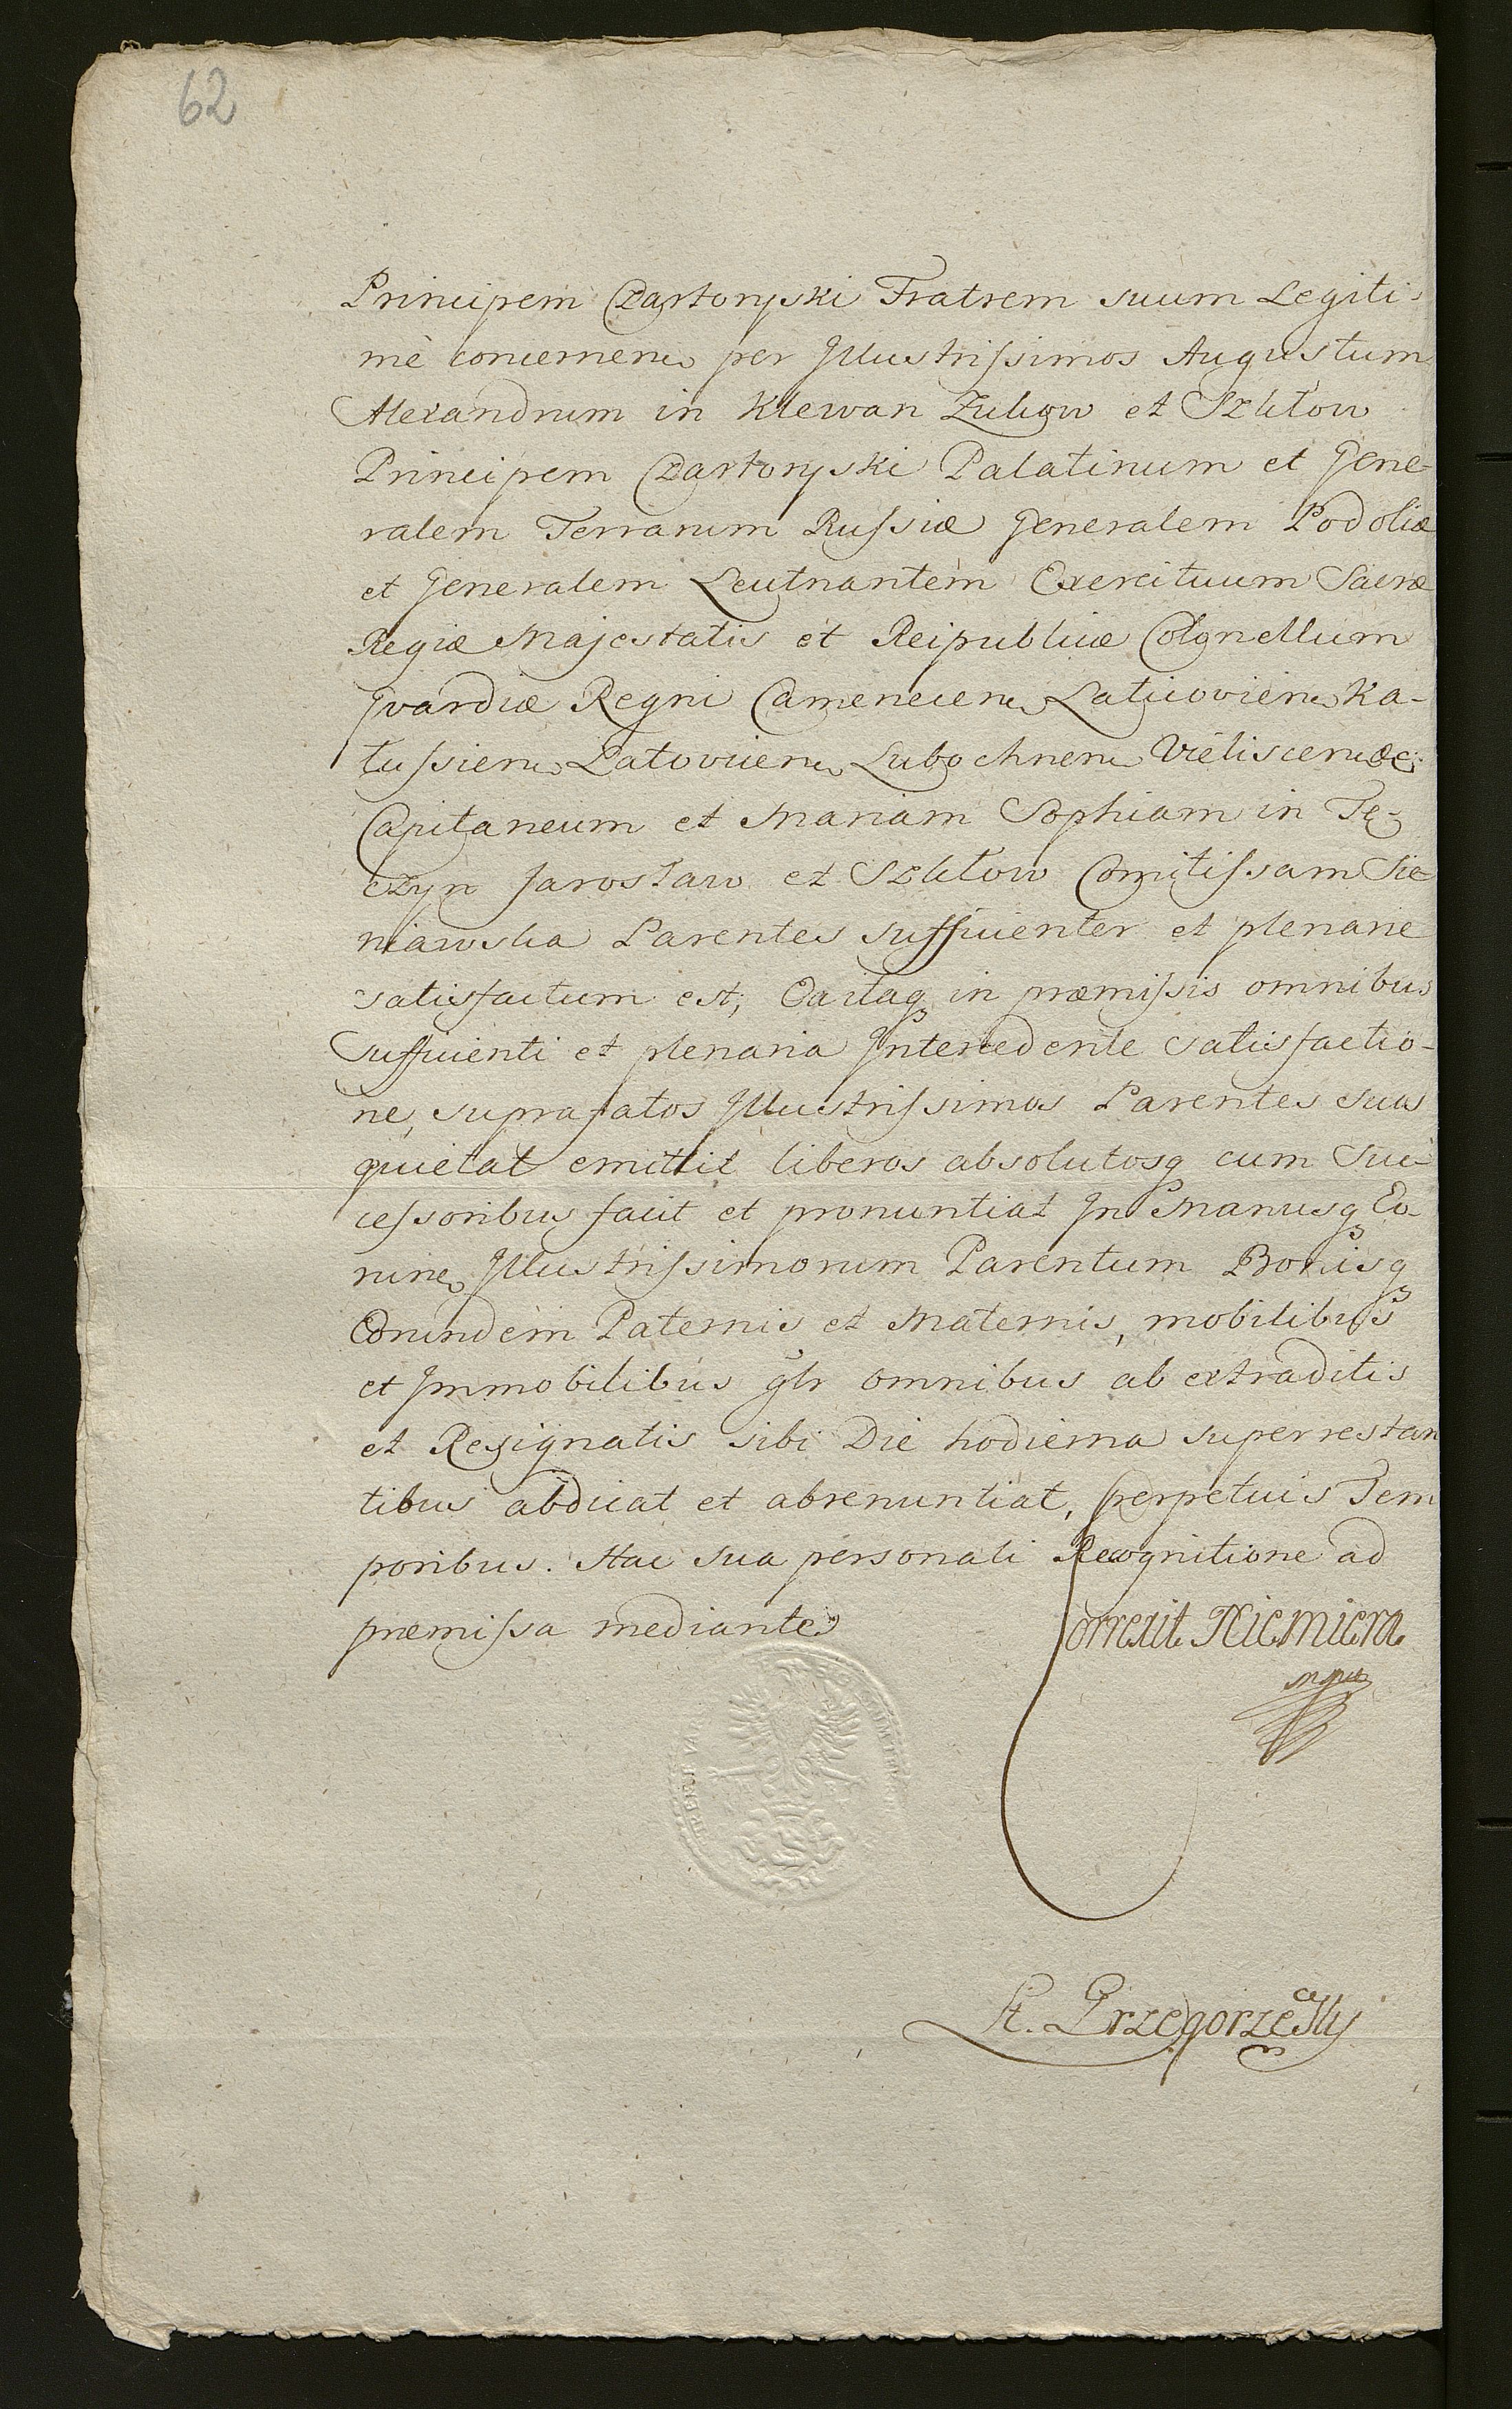 62
Principem Czartoryski Fratrem suum Legiti-
mè concernen per Illustrissimos Augustum
Alexandrum in Klewan Zukow et Szkłow
Principem Czartoryski Palatinum et Gene-
ralem Terrarum Russiæ Generalem Podoliæ
et Generalem Leutnantem Exercituum Sacræ
Regiæ Majestatis et Reipublicæ Colonellum
Gvardiæ Regni Camenecen Laticovien Ka-
łussien Latovicen Lubochnen Vieliscen &c:
Capitaneum et Mariam Sophiam in Tę-
czyn Jarosław et Szkłow Comitissam Sie-
niawska Parentes sufficienter et plenarie
satisfactum est; Eaitaq in præmissis omnibus
sufficienti et plenaria Intercedente satisfactio-
ne, suprafatos Illustrissimos Parentes suos
quietat emittit liberos absolutosq cum Suc-
cessoribus facit et pronuntiat In Manusq Eo-
runc Illustrissimorum Parentum Bonisq
Eorundem Paternis et Maternis, mobilibus
et Immobilibus glr omnibus ab extraditis
et Resignatis sibi Die hodierna superrestan
tibus abdicat et abrenuntiat, perpetuis Tem
poribus. Hac sua personali Recognitione ad
præmissa mediante
Correxit Niemiera
mpp
St. Grzegorzewski